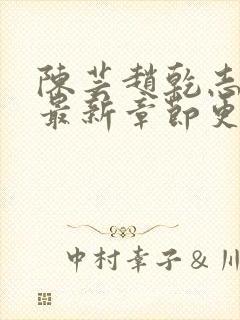 陳芸趙乾志
最新章節更
中村幸子&川